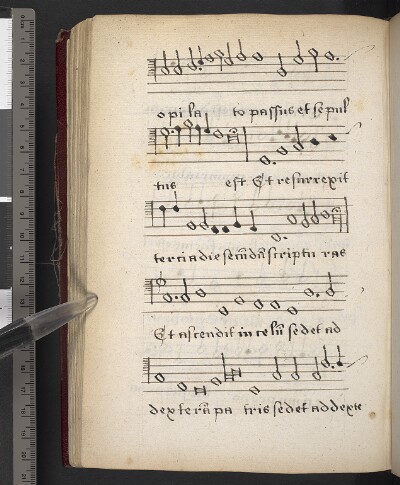 o pi la to passus et sepul
tus est Et resurrexit
tercia die secūdū scriptu ras
Et ascendit in celū sedet ad
dexterā pa tris sedet ad dexte